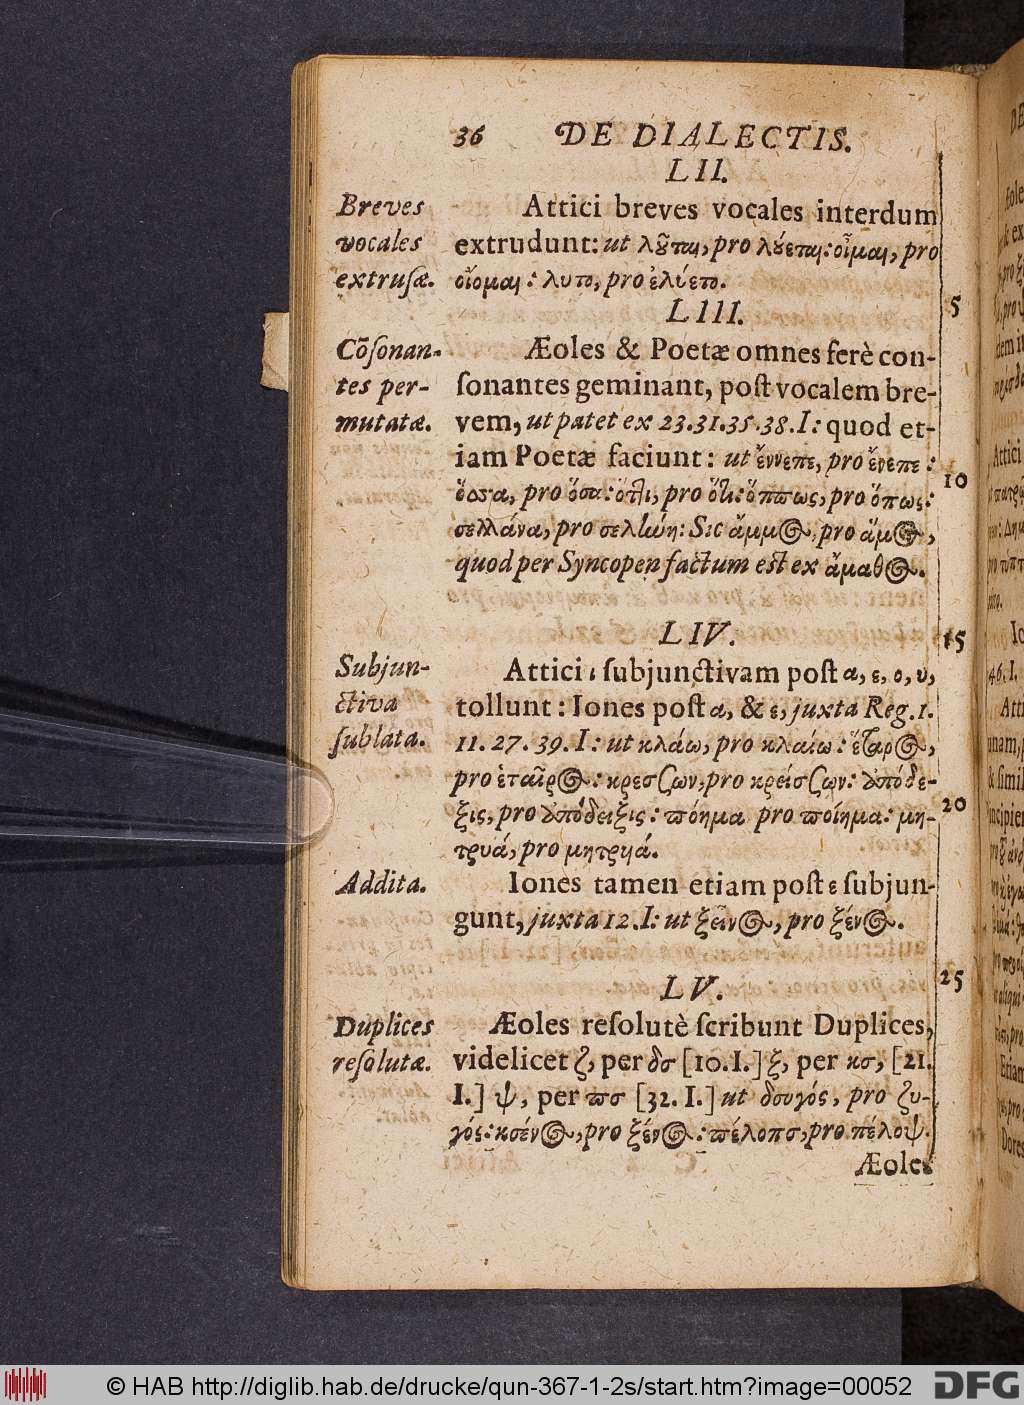 36 DE DIALECTIS.
LII.
Breves
vocales
extrusæ.
Attici breves vocales interdum
extrudunt: ut λοῦται, pro λούεται: οἶμαι, pro
οἴομαι: λυτο, pro ἐλύετο.
LIII.
5
Cõſonan-
tes per-
mutatæ.
Æoles & Poetæ omnes ferè con-
ſonantes geminant, poſt vocalem bre-
vem, ut patet ex 23.31.35.38.I: quod et-
iam Poetæ faciunt: ut ἔννεπε, pro ἔνεπε:
10
ὅσσα, pro ὅσα: ὅττι, pro ὅτι: ὅππως, pro ὅπως:
σελλάνα, pro σελήνη: Sic ἄμμος, pro ἄμος,
quod per Syncopen factum est ex ἄμαθος.
LIV.
15
Subjun-
ctiva
ſublata.
Attici ι ſubjunctivam poſt α, ε, ο, υ,
tollunt: Iones poſt α, & ε, juxta Reg.1.
11. 27. 39. I: ut κλάω, pro κλαίω: ἕταρος,
pro ἑταῖρος: κρεσσων, pro κρείσσων: ἀπόδε-
20
ξις, pro ἀπόδειξις: πόημα pro ποίημα: μη-
τρυά, pro μητρυιά.
Addita.
Iones tamen etiam poſt ε ſubjun-
gunt, juxta 12. I: ut ξεῖνος, pro ξένος.
LV.
25
Duplices
reſolutæ.
Æoles reſolutè ſcribunt Duplices,
videlicet ζ, per δσ [10. I.] ξ, per κσ, [21.
I.] ψ, per πσ [32. I.] ut δσυγός, pro ζυ-
γός: κσένος, pro ξένος: πέλοπσ, pro πέλοψ.
Æoles
© HAB http://diglib.hab.de/drucke/qun-367-1-2s/start.htm?image=00052 DFG